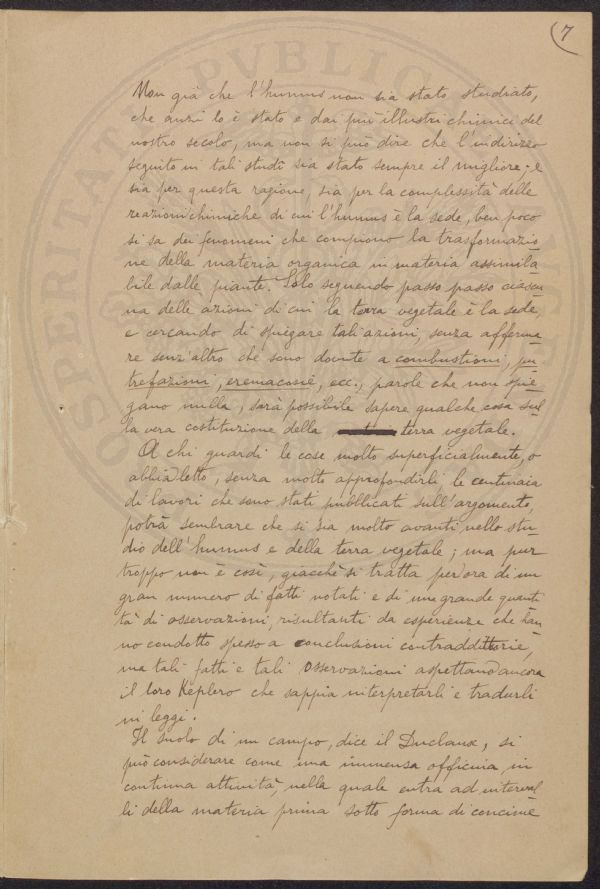 7
Non già che l'humus non sia stato studiato,
che anzi lo è stato e dai più illustri chimici del
nostro secolo, ma non si può dire che l'indirizzo
seguito in tali studî sia stato sempre il migliore; e
sia per questa ragione, sia per la complessità delle
reazioni chimiche di cui l'humus è la sede, ben poco
si sa dei fenomeni che compiono la trasformazio
ne della materia organica in materia assimila
bile dalle piante. Solo seguendo passo passo ciascu
na delle azioni di cui la terra vegetale è la sede,
e cercando di spiegare tali azioni, senza afferma
re senz'altro che sono dovute a combustioni, pu
trefazioni, eremacosie, ecc., parole che non spie
gano nulla, sarà possibile sapere qualche cosa sul
la vera costituzione della terra vegetale.
A chi guardi le cose molto superficialmente, o
abbia letto, senza molto approfondirli, le centinaia
di lavori che sono stati pubblicati sull'argomento,
potrà sembrare che si sia molto avanti nello stu
dio dell'humus e della terra vegetale; ma pur
troppo non è così, giacchè si tratta per ora di un
gran numero di fatti notati e di una grande quanti
tà di osservazioni, risultanti da esperienze che han
no condotto spesso a conclusioni contraddittorie,
ma tali fatti e tali osservazioni aspettano ancora
il loro Keplero che sappia interpretarli e tradurli
in leggi.
Il suolo di un campo, dice il Duclaux, si
può considerare come una immensa officina in
continua attività, nella quale entra ad interval
li della materia prima sotto forma di concime
PVBLICA